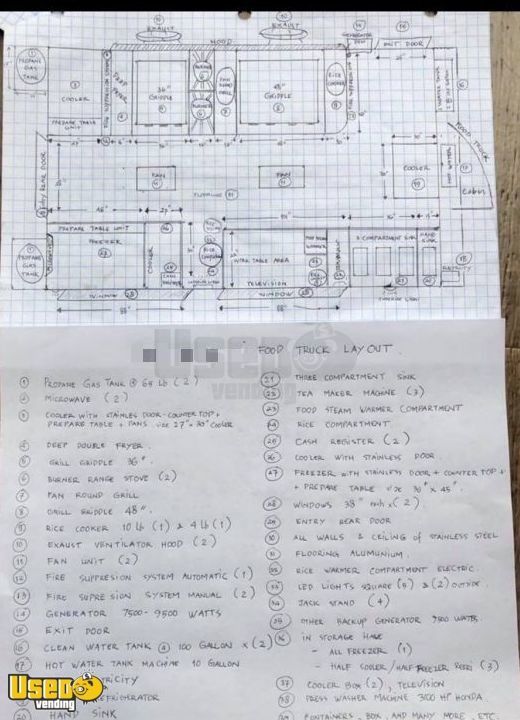 EXAULT
EXAULT
HOOD
EXIT DOOR
PROPANE GAS TANK
COOLER
PREPARE TABLE UNIT
DEEP FRYER
36"
GRIDDLE
BURNER
BURNER
48"
GRIDDLE
RICE COOKER
FAN
FAN
FLOORING
COOLER
HOT WATER
FOOD TRUCK
Cabin
PREPARE TABLE UNIT
FREEZER
COOLER
WORK TABLE AREA
TELEVISION
3 COMPARTMENT SINK
HAND SINK
WINDOW
WINDOW
PROPANE GAS TANK
88"
88"
FOOD TRUCK LAYOUT.
1 PROPANE GAS TANK @ 65 Lb (2)
2 MICROWAVE (2)
3 COOLER WITH STAINLES DOOR-COUNTER TOP +
PREPARE TABLE + PANS size 27" x 30" COOLER
4 DEEP DOUBLE FRYER.
5 GRILL GRIDDLE 36".
6 BURNER RANGE STOVE (2)
7 PAN ROUND GRILL
8 GRILL GRIDDLE 48".
9 RICE COOKER 10 lb (1) & 4 lb (1)
10 EXAUST VENTILATOR HOOD (2)
11 FAN UNIT (2)
12 FIRE SUPPRESION SYSTEM AUTOMATIC (1)
13 FIRE SUPRESION SYSTEM MANUAL (2)
14 GENERATOR 7500-9500 WATTS
15 EXIT DOOR
16 CLEAN WATER TANK @ 100 GALLON x (2)
17 HOT WATER TANK MACHINE 10 GALLON
20 HAND SINK
21 THREE COMPARTMENT SINK
22 TEA MAKER MACHINE (3)
23 FOOD STEAM WARMER COMPARTMENT
24 RICE COMPARTMENT
25 CASH REGISTER (2)
26 COOLER WITH STAINLESS DOOR.
27 FREEZER WITH STAINLESS DOOR + COUNTER TOP +
+ PREPARE TABLE size 30" x 45".
28 WINDOWS 38" x (2)
29 ENTRY REAR DOOR
30 ALL WALLS & CEILING of STAINLESS STEEL
31 FLOORING ALUMUNIUM.
32 RICE WARMER COMPARTMENT ELECTRIC.
33 LED LIGHTS SQUARE (5) & (2) OUTSIDE.
34 JACK STAND (4)
35 OTHER BACKUP GENERATOR 9500 WATTS.
36 IN STORAGE HAVE
- ALL FREEZER (1)
- HALF COOLER / HALF FREEZER REFRI (3)
37 COOLER BOX (2), TELEVISION
38 PRESS WASHER MACHINE 3100 HP HONDA.
39 CONTAINERS, BOX, AND MANY MORE, ETC.
Used
vending
Used
vending